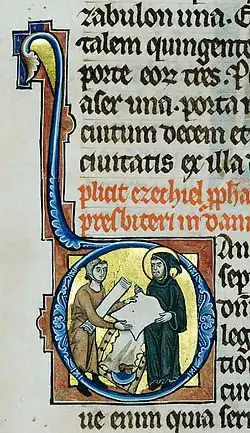 zabulon una. E
talem quingent
porte eorum tres. P
aser una. porta
cuitum decem et
ciuitatis ex illa
plicit ezechiel ppha
presbiteri in dani
An
sep
leg
tion
cur
ue enim quia ser